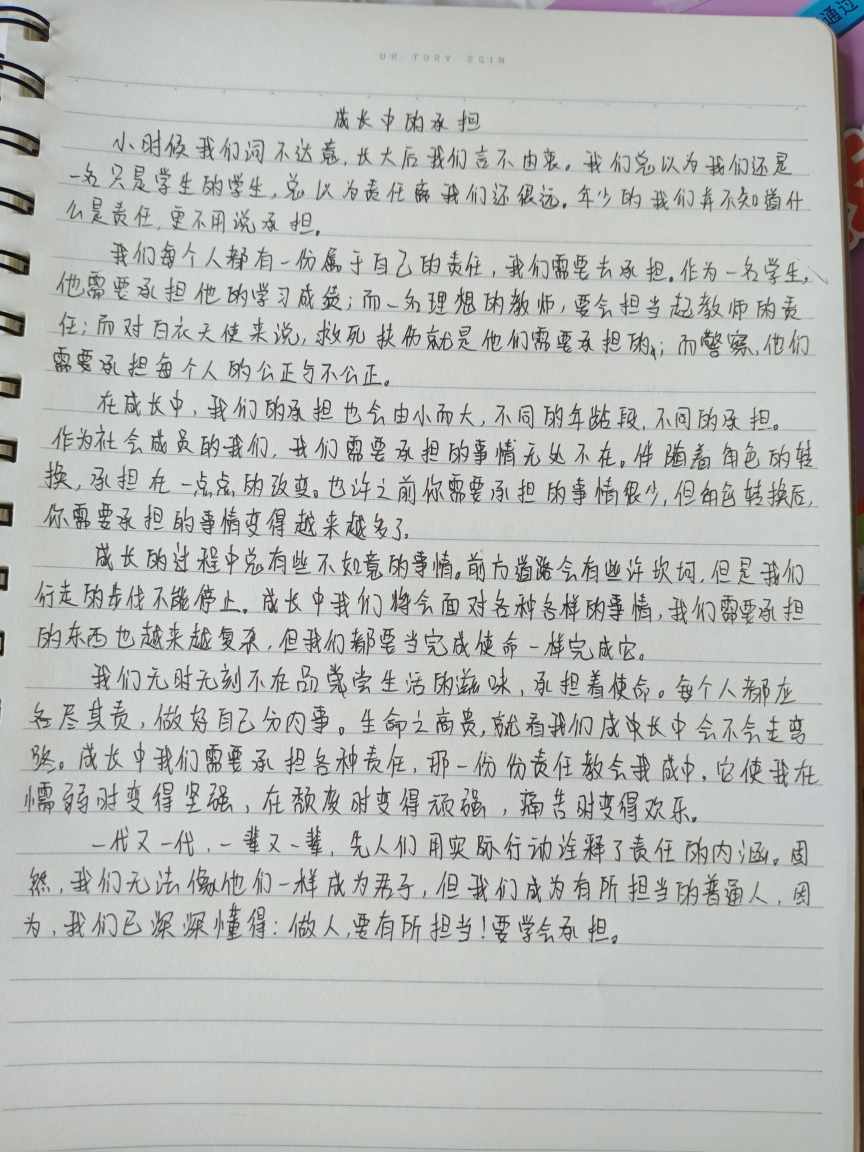 通过
成长中的承担
小时候我们词不达意,长大后我们言不由衷。我们总以为我们还是
一名只是学生的学生,总以为责任离我们还很远。年少的我们并不知道什
么是责任,更不用说承担。
我们每个人都有一份属于自己的责任,我们需要去承担。作为一名学生,
他需要承担他的学习成绩;而一名理想的教师,要会担当起教师的责
任;而对白衣天使来说,救死扶伤就是他们需要承担的;而警察,他们
需要承担每个人的公正与不公正。
在成长中,我们的承担也会由小而大,不同的年龄段,不同的承担。
作为社会成员的我们,我们需要承担的事情无处不在。伴随着角色的转
换,承担在一点点的改变。也许之前你需要承担的事情很少,但角色转换后,
你需要承担的事情变得越来越多了。
成长的过程中总有些不如意的事情。前方道路会有些许坎坷,但是我们
行走的步伐不能停止。成长中我们将会面对各种各样的事情,我们需要承担
的东西也越来越复杂,但我们都要当完成使命一样完成它。
我们无时无刻不在品尝生活的滋味,承担着使命。每个人都应
各尽其责,做好自己分内事。生命之高贵,就看我们成长中会不会走弯
路。成长中我们需要承担各种责任,那一份份责任教会我成中,它使我在
懦弱时变得坚强,在颓废时变得顽强,痛苦时变得欢乐。
一代又一代,一辈又一辈,先人们用实际行动诠释了责任的内涵。固
然,我们无法像他们一样成为君子,但我们成为有所担当的普通人,因
为,我们已深深懂得:做人,要有所担当!要学会承担。